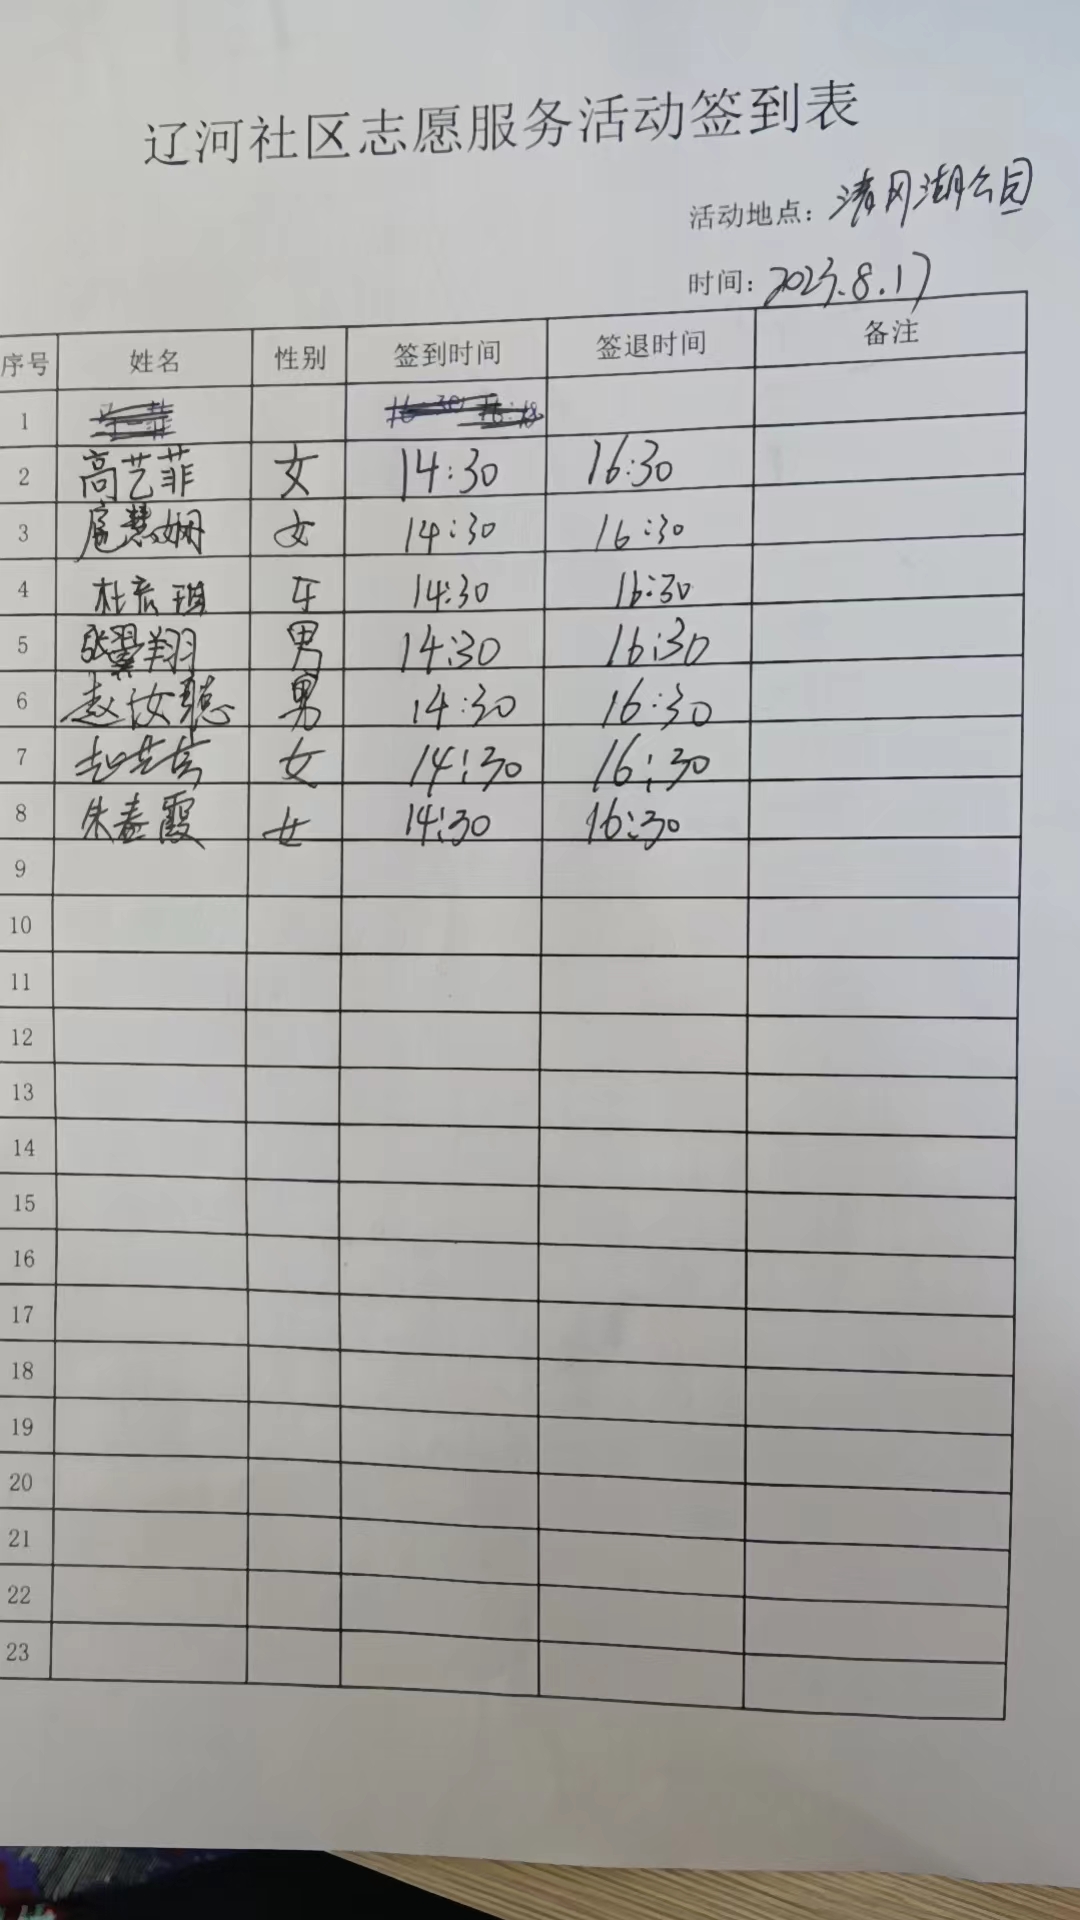 辽河社区志愿服务活动签到表
活动地点：清风湖公园
时间：2023.8.17
序号 姓名 性别 签到时间 签退时间 备注
1
2 高艺菲 女 14:30 16:30
3 扈慧娴 女 14:30 16:30
4 14:30 16:30
5 张翼翔 男 14:30 16:30
6 赵汝聪 男 14:30 16:30
7 女 14:30 16:30
8 朱春霞 女 14:30 16:30
9
10
11
12
13
14
15
16
17
18
19
20
21
22
23